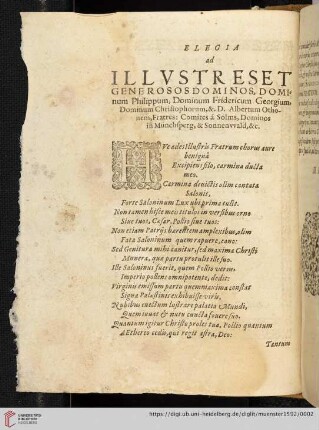 ELEGIA
ad
ILLVSTRES ET
GENEROSOS DOMINOS, DOMI-
num Philippum, Dominum Fridericum Georgium,
Dominum Christophorum, &. D. Albertum Otho-
nem, Fratres: Comites à Solms, Dominos
in Munchsperg, & Sonnenvvald, &c.
Huc ades Illustris Fratrum chorus aure
benignâ
Excipiens filo, carmina ducta
meo.
Carmina devictis olim cantata
Salonis,
Forte Saloninum Lux ubi prima tulit.
Non tamen hisce meis titulos in versibus orno
Sive tuos, Cæsar, Pollio sive tuos:
Non etiam Patrijs hærentem amplexibus, olim
Fata Saloninum quem rapuere, cano:
Sed Genitura mihi canitur, sed maxima Christi
Munera, quæ partu protulit ille suo.
Ille Saloninus fuerit, quem Pollio verus,
Imperio pollens omnipotente, dedit:
Virginis enissum partu quem maxima constat
Signa Palæstinis exhibuisse viris,
Nubibus eiectum lustrare palatia Mundi,
Quem iuvat & nutu cuncta fovere suo.
Quantum igitur Christus proles tua, Pollio quantum
Æthereo cœlo, qui regis astra, Deo:
Tantum
UNIVERSITÄTS-
BIBLIOTHEK
HEIDELBERG
https://digi.ub.uni-heidelberg.de/diglit/muenster1592/0002